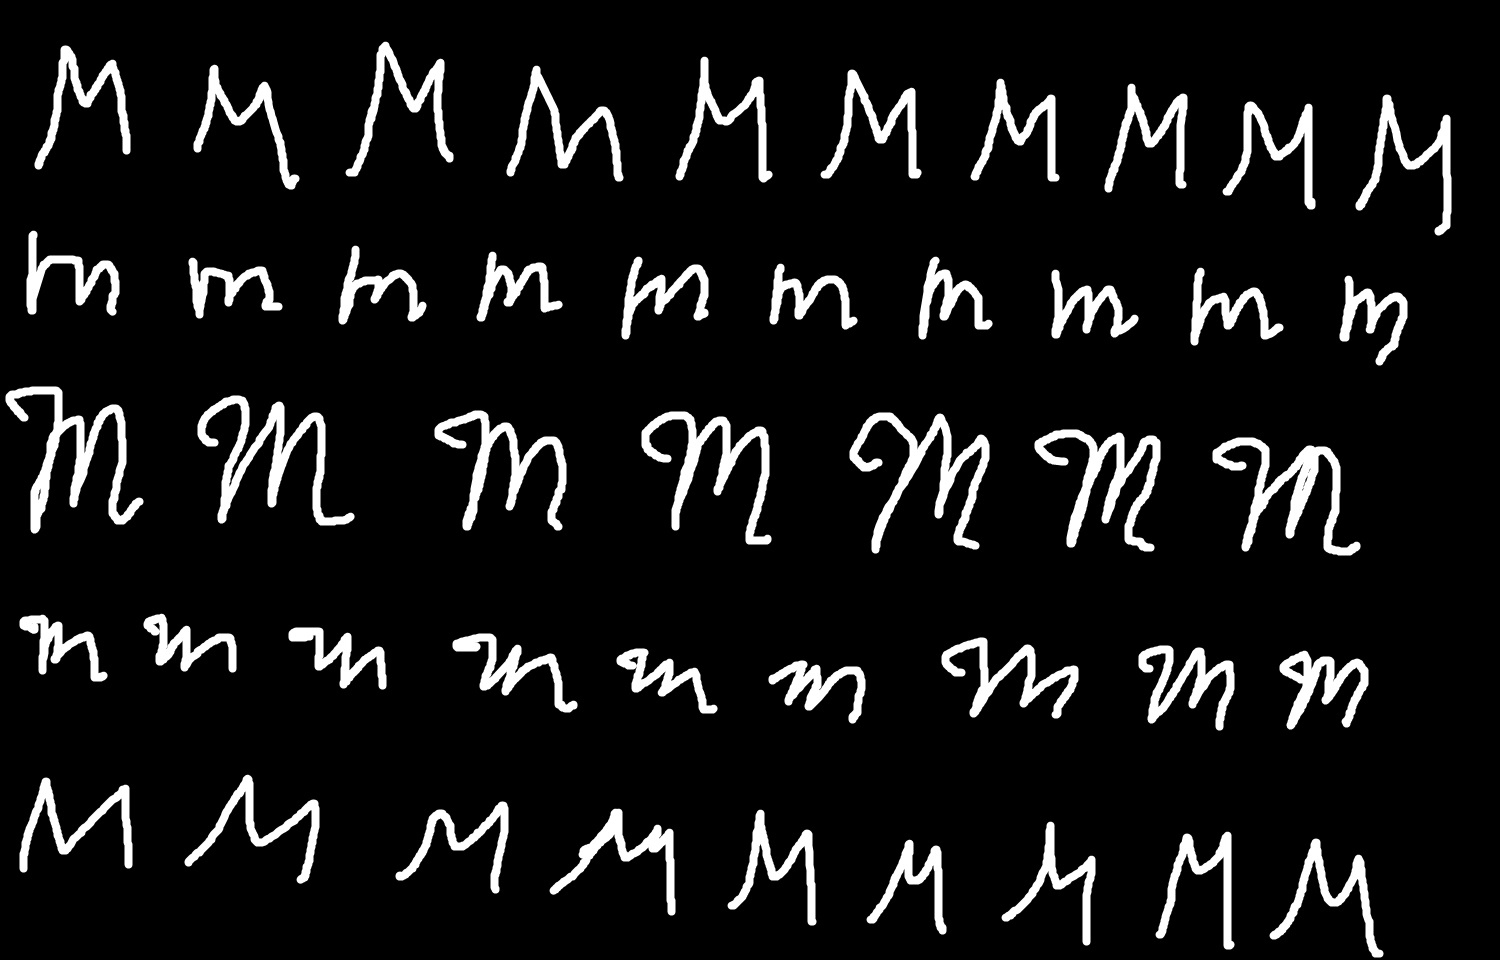 M M M M M M M M M M
m m m m m m m m m m
M M M M M M M
m m m m m m m m m
M M M M M M M M M